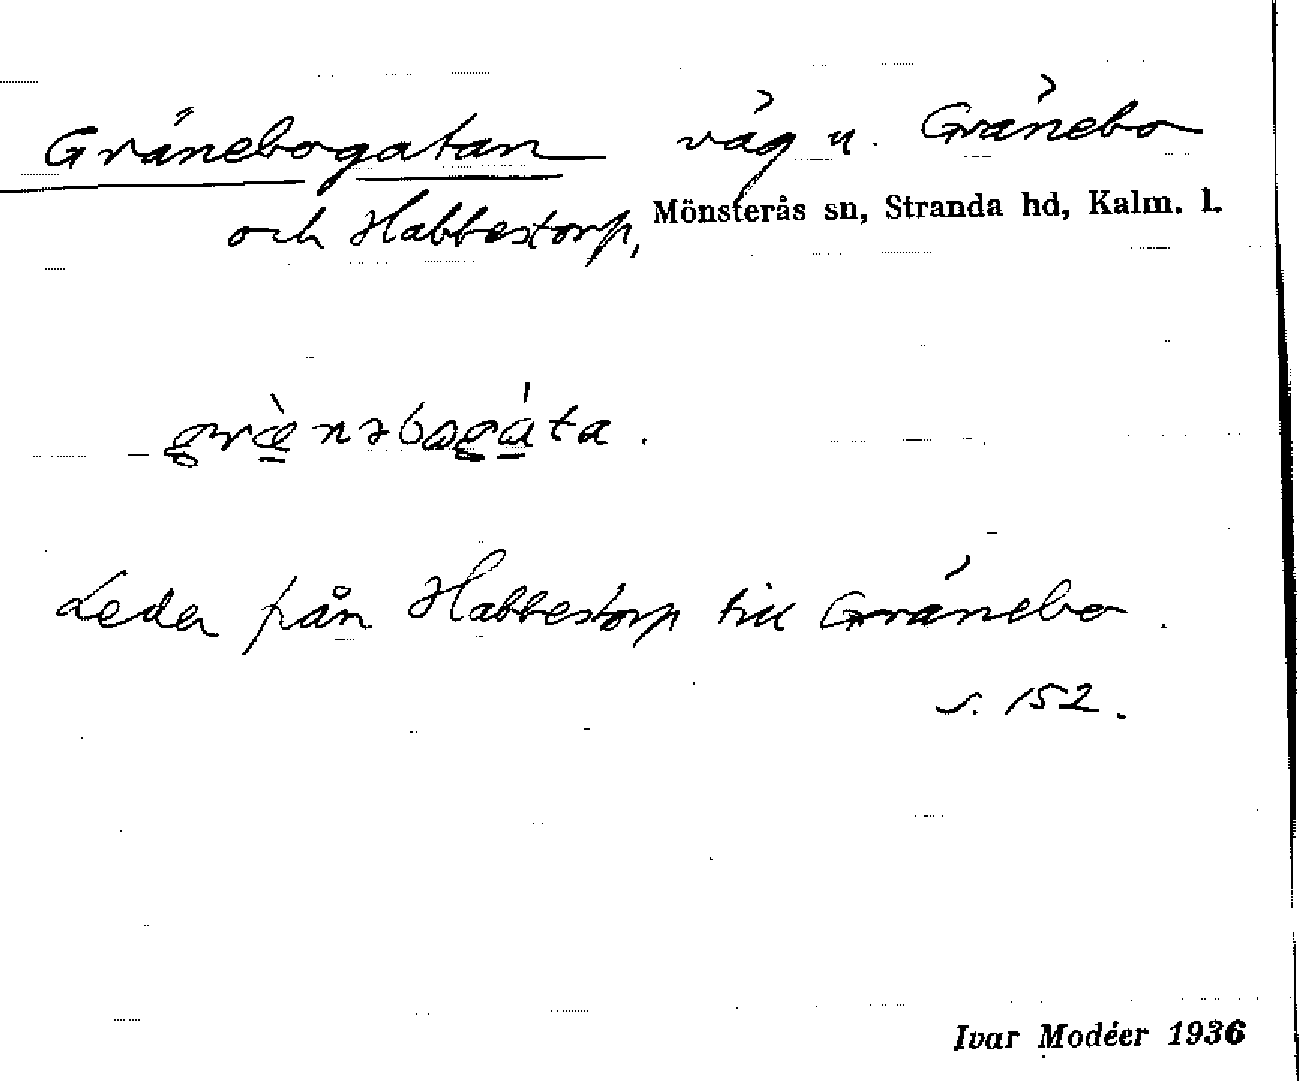 Gränebogatan väg u. Gränebo
och Habbestorp, Mönsterås sn, Stranda hd, Kalm. l.
græ̀nəbogáta.
Leder från Habbestorp till Gränebo.
s. 152.
Ivar Modéer 1936